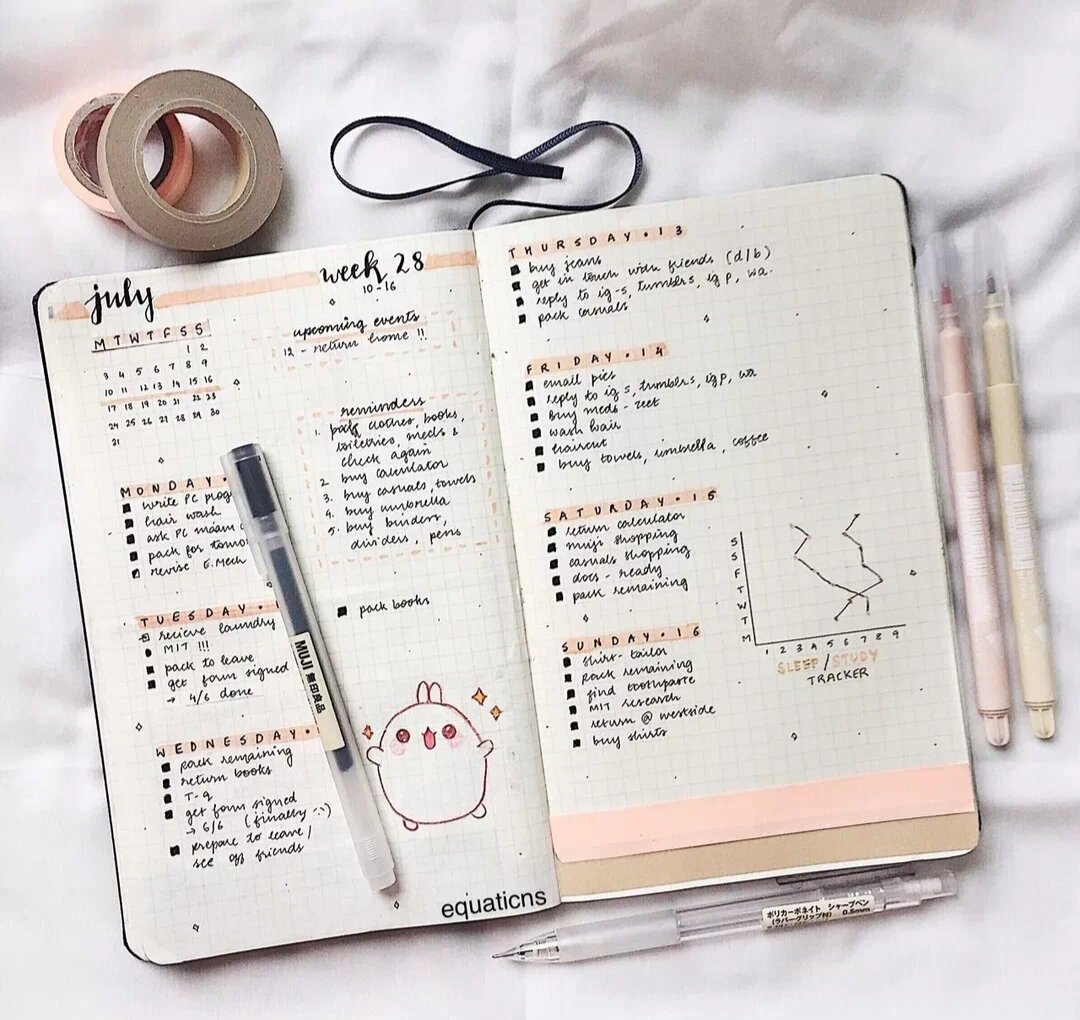 july
week 28
10-16
M T W T F S S
1 2
3 4 5 6 7 8 9
10 11 12 13 14 15 16
17 18 19 20 21 22 23
24 25 26 27 28 29 30
31
upcoming events
12 - return home !!
reminders
1. pack clothes, books,
toiletries, meds &
check again
2. buy calculator
3. buy casuals, towels
4. buy umbrella
5. buy binders,
dividers, pens
MONDAY
write PC prog
hair wash
ask PC ma'am
pack for tomo
revise E.Mech
TUESDAY
recieve laundry
MIT !!!
pack to leave
get form signed
→ 4/6 done
pack books
WEDNESDAY
pack remaining
return books
T-9
get form signed
→ 6/6 (finally :))
prepare to leave /
see off friends
equaticns
THURSDAY · 13
buy jeans
get in touch with friends (d/b)
reply to ig-s, tumblrs, ig p, wa.
pack casuals
FRIDAY · 14
email pics
reply to ig s, tumblrs, ig p, wa
buy meds - zeet
wash hair
haircut
buy towels, umbrella, coffee
SATURDAY · 15
return calculator
muji shopping
casuals shopping
docs - ready
pack remaining
SUNDAY · 16
shirt - tailor
pack remaining
find toothpaste
MIT research
return @ westside
buy shirts
S
S
F
T
W
T
M
1 2 3 4 5 6 7 8 9
SLEEP / STUDY
TRACKER
MUJI 無印良品
ポリカーボネイト シャープペン
(ラバーグリップ付) 0.5mm